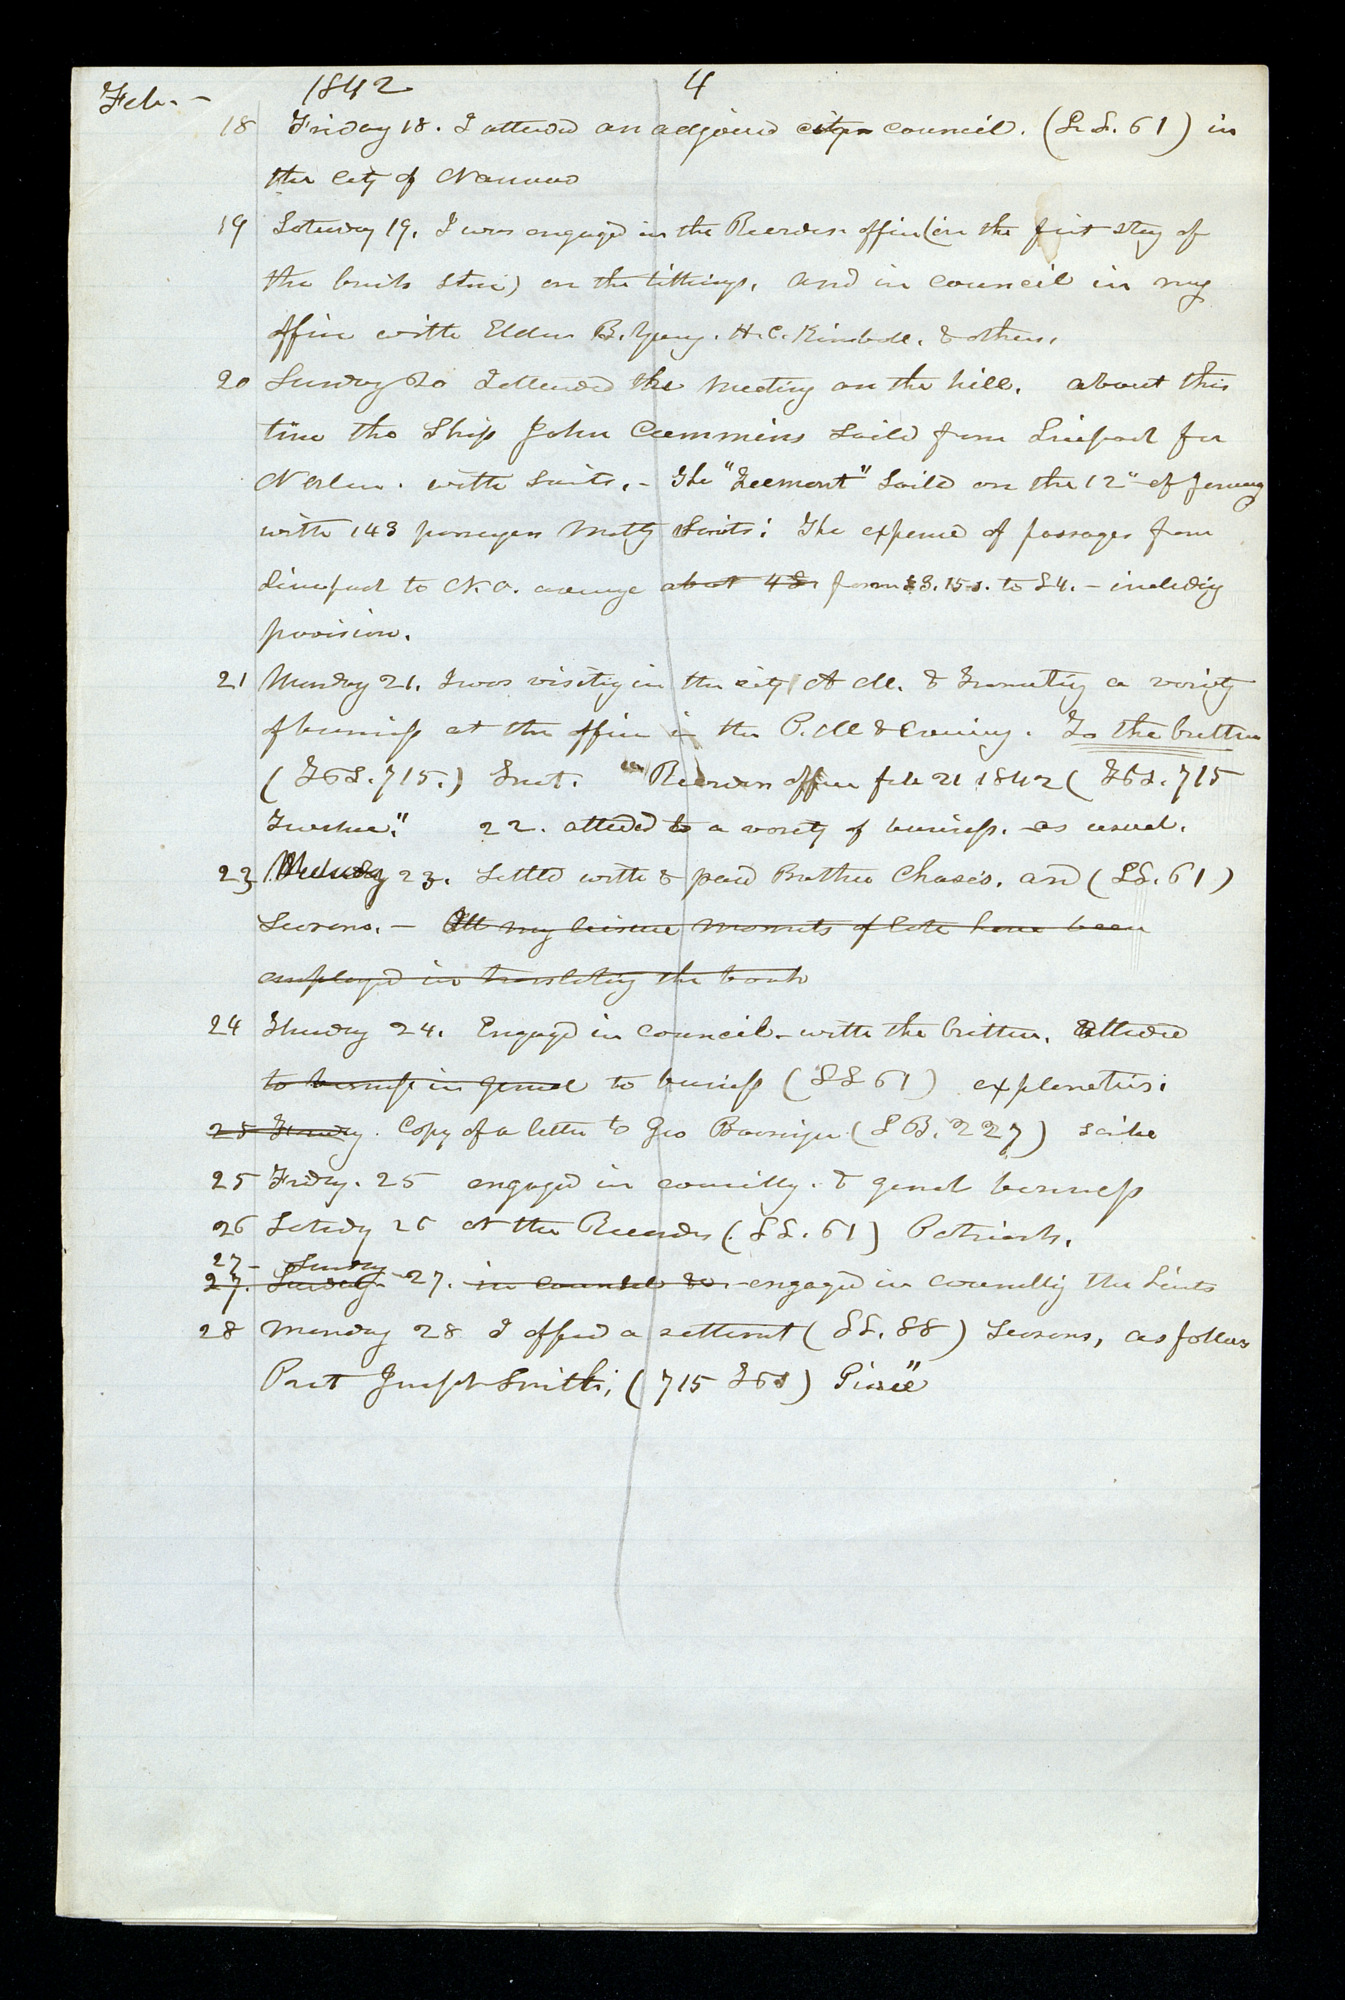 Feb. - 1842 4
18 Friday 18. I attended an adjoured city council. (L.S. 61) in
the city of Nauvoo
19 Saturday 19. I was engaged in the Recorders office (in the first story of
the brick store) on the tithings, and in council in my
office with Elders B. Young. H.C. Kimball. & others.
20 Sunday 20 I attended the meeting on the hill. about this
time the Ship John Cummins saild from Liverpool for
N Orleans. with Saints. - The "Tremont" Saild on the 12" of January
with 143 passengers mostly Saints: The expence of passages from
Liverpool to N.O. average about 4£ from £3.15s. to £4. - including
provision.
21 Monday 21. I was visiting in the city A M. & Transacting a variety
of business at the office in the P.M & Evening. To the brethren
(T&S. 715.) Inst. "Recorders office feb 21 1842 (T&S. 715
Trustee." 22. attended to a variety of business. as usual.
23 Wednesday 23. Settled with & paid Brother Chases. and (LS. 61)
Seasons. - All my leisure moments of late have been
employed in translating the book
24 Thursday 24. Engaged in council - with the brethren. Attended
to business in general to business (LS 61) explanations:
25 Friday. Copy of a letter to Geo (L B. 227) scribe
25 Friday. 25 engaged in counciling. & general business
26 Saturday 26 At the Recorders (LS. 61) Patriarch.
27 - Sunday
27. Sunday 27. in council &c. engaged in counselling the Saints
28 Monday 28 I offered a settlement (LS. 88) Seasons, as follows
Past Joseph Smith; (715 T&S)